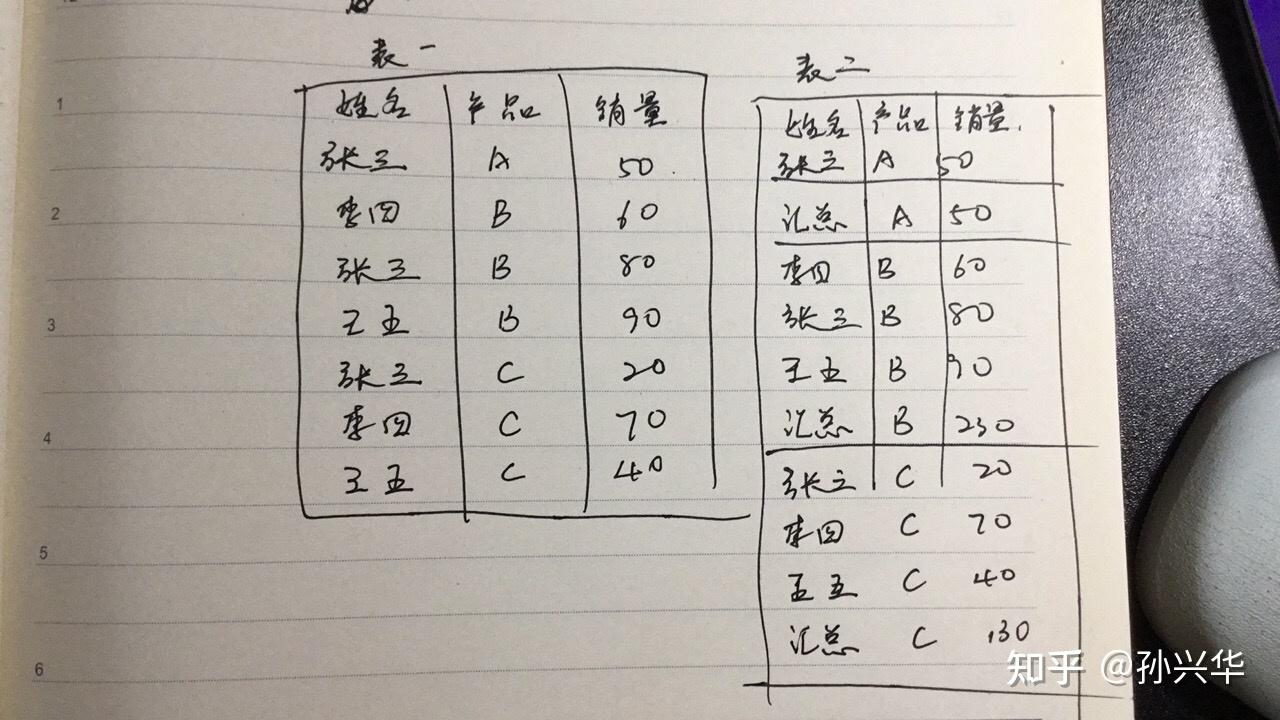 表一
姓名 产品 销量
张三 A 50
李四 B 60
张三 B 80
王五 B 90
张三 C 20
李四 C 70
王五 C 40
表二
姓名 产品 销量
张三 A 50
汇总 A 50
李四 B 60
张三 B 80
王五 B 90
汇总 B 230
张三 C 20
李四 C 70
王五 C 40
汇总 C 130
1
2
3
4
5
6
知乎 @孙兴华